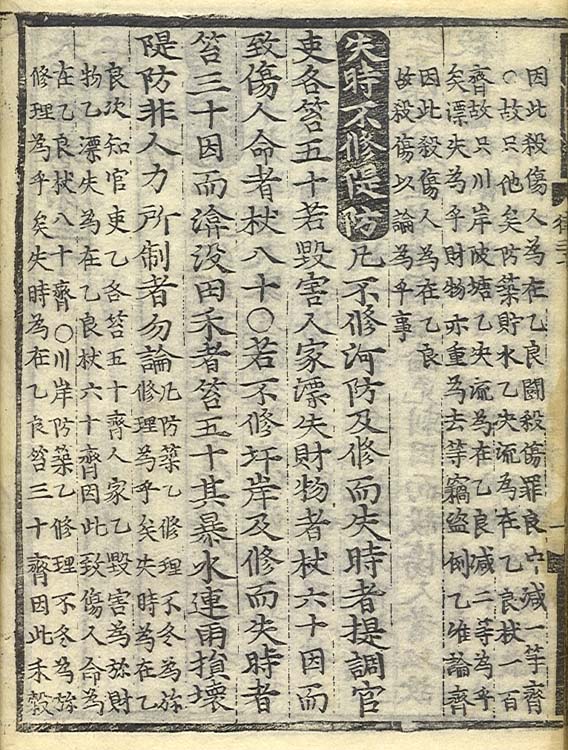 因此殺傷人為在乙良鬪殺傷罪良中減一等齊
○故只他矣防築貯水乙决流為在乙良杖一百
齊故只川岸陂塘乙决流為在乙良減二等為乎
矣漂失為乎財物亦重為去等竊盜例乙准論齊
因此殺傷人為在乙良
故殺傷以論為乎事
失時不修隄防凡不修河防及修而失時者提調官
吏各笞五十若毀害人家漂失財物者杖六十因而
致傷人命者杖八十○若不修圩岸及修而失時者
笞三十因而渰没田禾者笞五十其暴水連雨損壞
隄防非人力所制者勿論
凡防築乙修理不冬為旀
修理為乎矣失時為在乙
良次知官吏乙各笞五十齊人家乙毀害為旀財
物乙漂失為在乙良杖六十齊因此致傷人命為
在乙良杖八十齊○川岸防築乙修理不冬為旀
修理為乎矣失時為在乙良笞三十齊因此禾穀